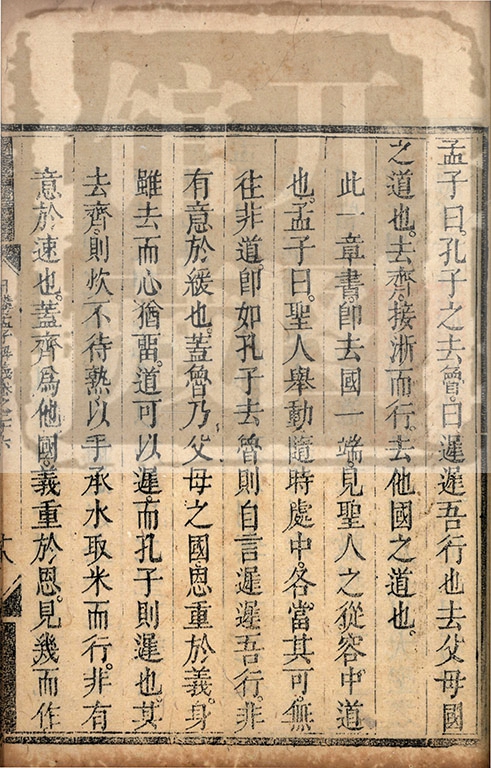 孟子曰。孔子之去魯。曰遲遲吾行也去父母國
之道也。去齊。接淅而行。去他國之道也。
此一章書。即去國一端。見聖人之從容中道
也。孟子曰。聖人舉動隨時處中。各當其可。無
往非道。即如孔子去魯則自言遲遲吾行。非
有意於緩也。蓋魯乃父母之國。恩重於義。身
雖去而心猶畱。道可以遲。而孔子則遲也。其
去齊。則炊不待熟以手承水取米而行。非有
意於速也。蓋齊爲他國。義重於恩。見幾而作